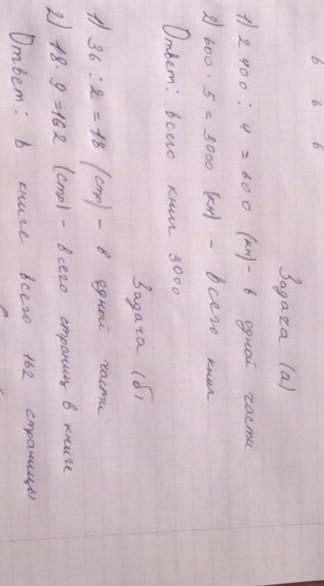 Задача (а)
1) 2 400 : 4 = 600 (кн) - в одной части
2) 600 · 5 = 3000 (кн) - всего книг
Ответ: всего книг 3000
Задача (б)
1) 36 : 2 = 18 (стр) - в одной части
2) 18 · 9 = 162 (стр) - всего страниц в книге
Ответ: в книге всего 162 страницы